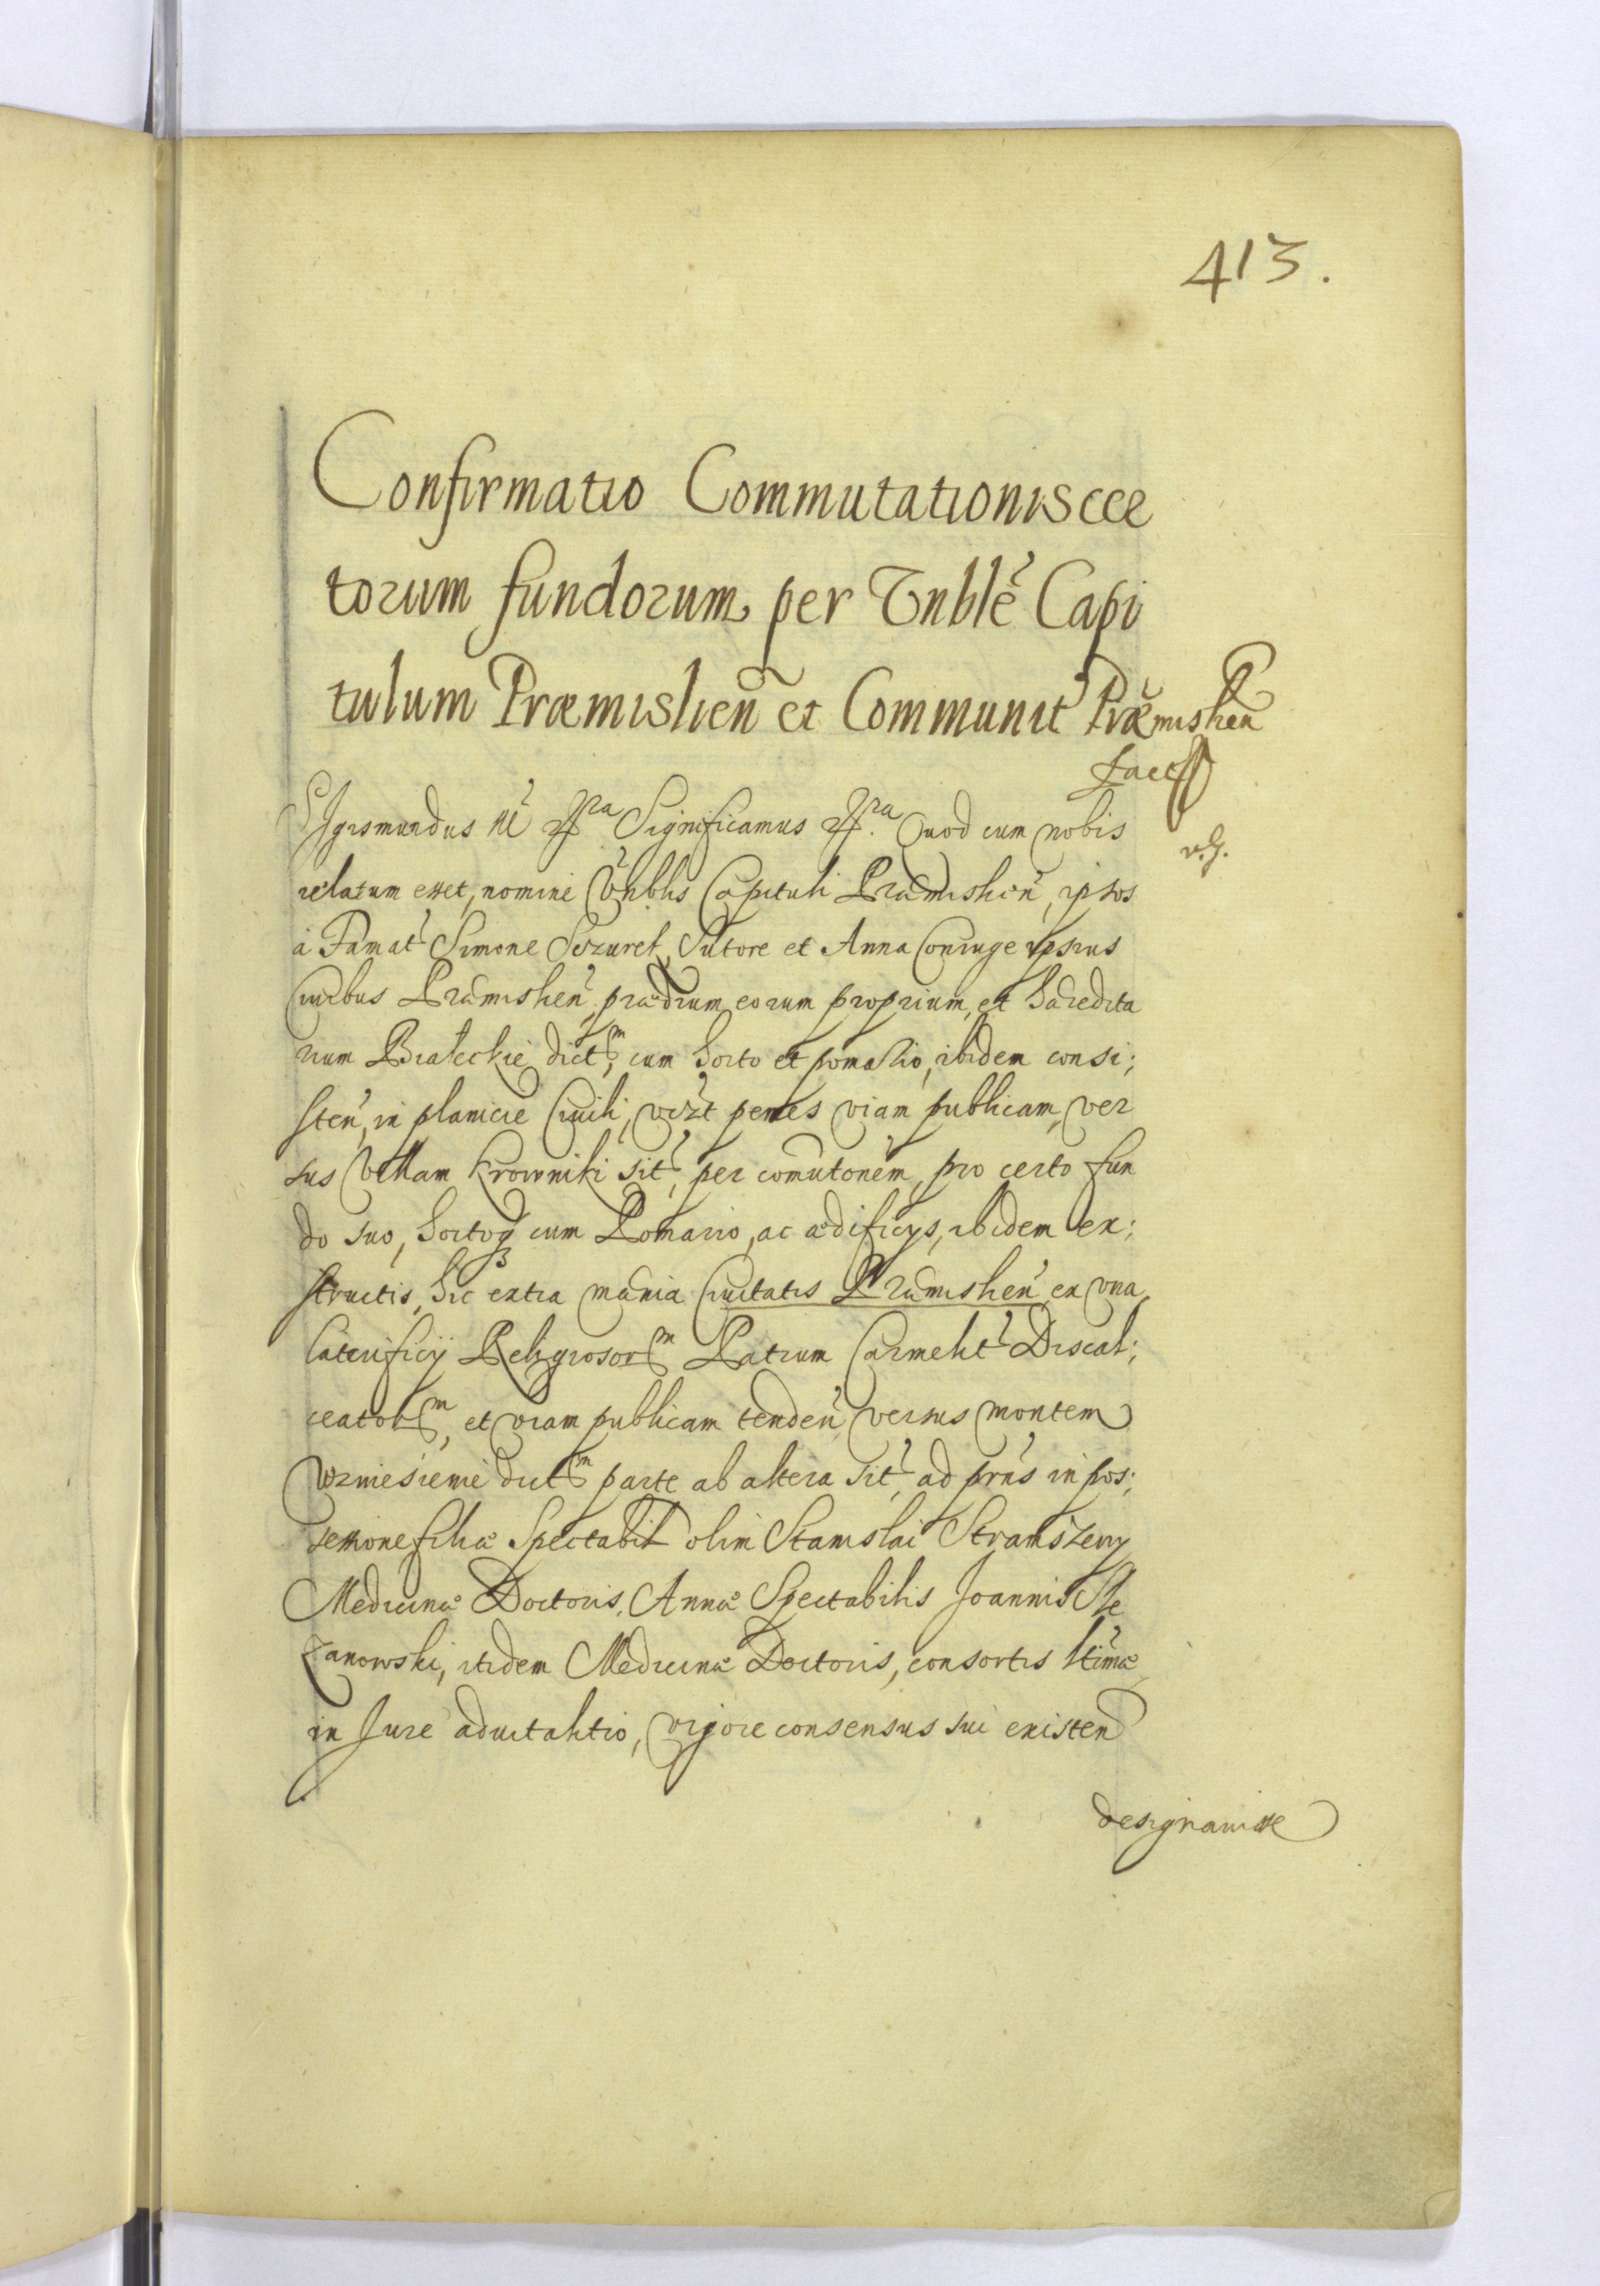 413.
Confirmatio Commutationis cer
torum fundorum per Vnble Capi
tulum Præmislien et Communit Præmislien
fact
Sigismundus III etc Significamus etc Quod cum nobis
relatum esset, nomine Vnblis Capituli Præmislien, ipsos
à Famat Simone Sutore et Anna Coniuge ipsius
Ciuibus Præmislien, prædium eorum proprium, et hæredita
rium Białeckie dictm, cum horto et pomario, ibidem consi;
sten, in planicie Ciuili, vizt penes viam publicam, ver
sus Villam Krowniki sit, per comutonem, pro certo fun
do suo, hortoq cum Pomario, ac ædificys, ibidem ex;
structis, hic extra mænia Ciuitatis Præmislien ex vna
laterificij Religiosorm Patrum Carmelit Discal;
ceatorm, et viam publicam tenden versus montem
Wzniesienie dictm parte ab altera sit, ad præns in pos;
sessione filiæ Spectabil olim Stanislai
Medicinæ Doctoris, Annæ Spectabilis Joannis
zanowski, itidem Medicinæ Doctoris, consortis ltimæ
in Jure aduitalitio, vigore consensus sui existen
designauisse